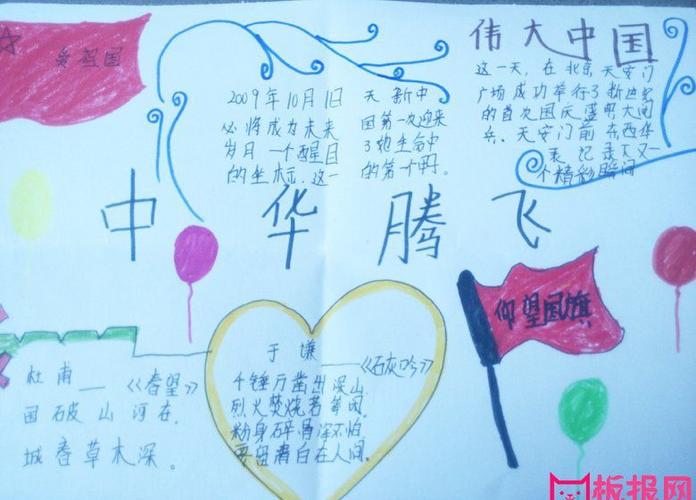 爱祖国
伟大中国
2009年10月1日
必将成为未来
岁月一个醒目
的坐标.这一
天 新中
国第一次迎来
了她生命中
的第一个
这一天，在北京天安门
广场成功举行了新世纪
的首次国庆盛明大阅
兵。天安门前东西华
表记录下又一
个精彩瞬间
中华腾飞
仰望国旗
杜甫——《春望》
国破山河在，
城春草木深。
于谦——《石灰吟》
千锤万凿出深山
烈火焚烧若等闲，
粉身碎骨浑不怕
要留清白在人间。
板报网